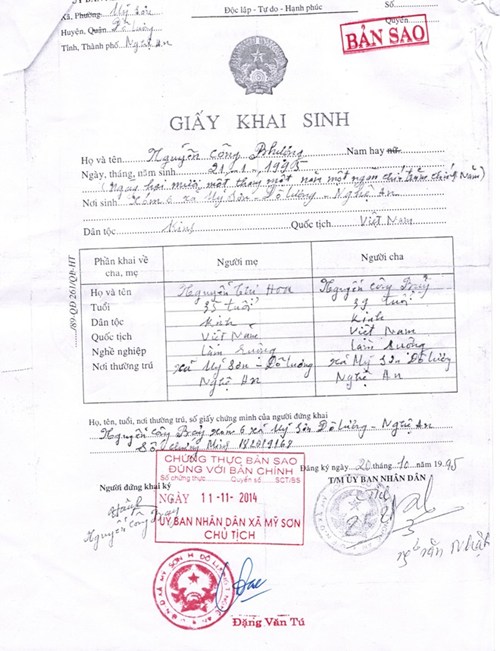 Xã, Phường Mỹ Sơn
Huyện, Quận Đô Lương
Tỉnh, Thành phố Nghệ An
Độc lập - Tự do - Hạnh phúc
Số
Quyển
BẢN SAO
GIẤY KHAI SINH
Họ và tên Nguyễn Công Phượng Nam hay nữ
Ngày, tháng, năm sinh 21-1-1995
(Ngày hai mươi một tháng một năm một ngàn chín trăm chín 5 Năm)
Nơi sinh Xóm 6 xã Mỹ Sơn - Đô Lương - Nghệ An
Dân tộc Kinh Quốc tịch Việt Nam
Phần khai về cha, mẹ Người mẹ Người cha
Họ và tên Nguyễn Thị Hoa Nguyễn Công Bảy
Tuổi 35 tuổi 37 tuổi
Dân tộc Kinh Kinh
Quốc tịch Việt Nam Việt Nam
Nghề nghiệp Làm ruộng Làm ruộng
Nơi thường trú xã Mỹ Sơn - Đô Lương xã Mỹ Sơn Đô Lương
Nghệ An Nghệ An
Họ, tên, tuổi, nơi thường trú, số giấy chứng minh của người đứng khai
Nguyễn Công Bảy xóm 6 xã Mỹ Sơn Đô Lương - Nghệ An
Số chứng minh
Đăng ký ngày 20 tháng 10 năm 1995
Người đứng khai ký
T/M ỦY BAN NHÂN DÂN
CHỨNG THỰC BẢN SAO
ĐÚNG VỚI BẢN CHÍNH
Số chứng thực Quyển số SCT/BS
NGÀY 11-11-2014
ỦY BAN NHÂN DÂN XÃ MỸ SƠN
CHỦ TỊCH
Nguyễn Công Bảy
Đặng Văn Tú